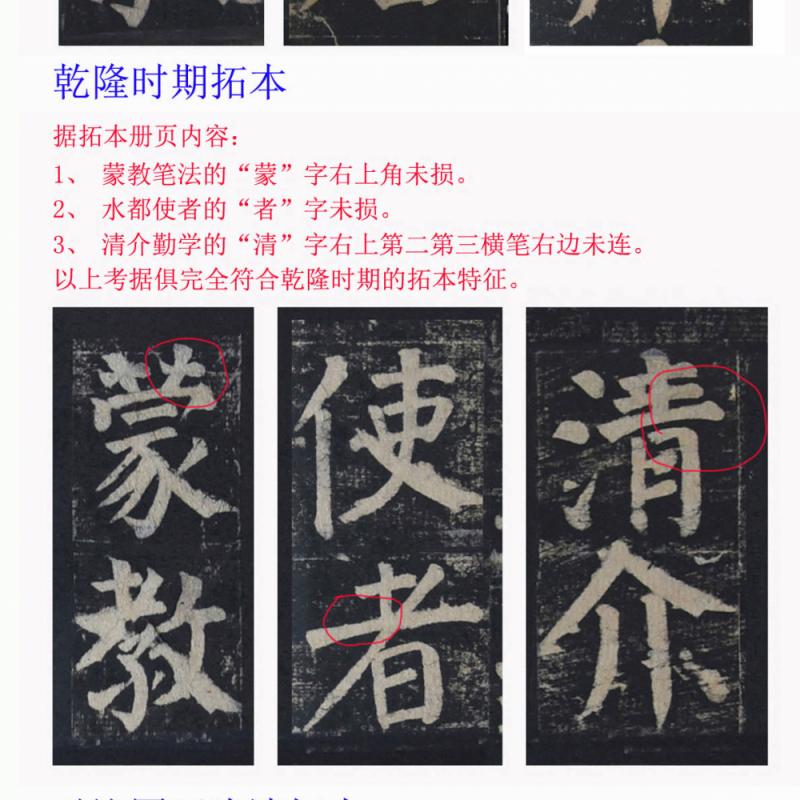 乾隆时期拓本
据拓本册页内容：
1、 蒙教笔法的“蒙”字右上角未损。
2、 水都使者的“者”字未损。
3、 清介勤学的“清”字右上第二第三横笔右边未连。
以上考据俱完全符合乾隆时期的拓本特征。
蒙教
使者
清介